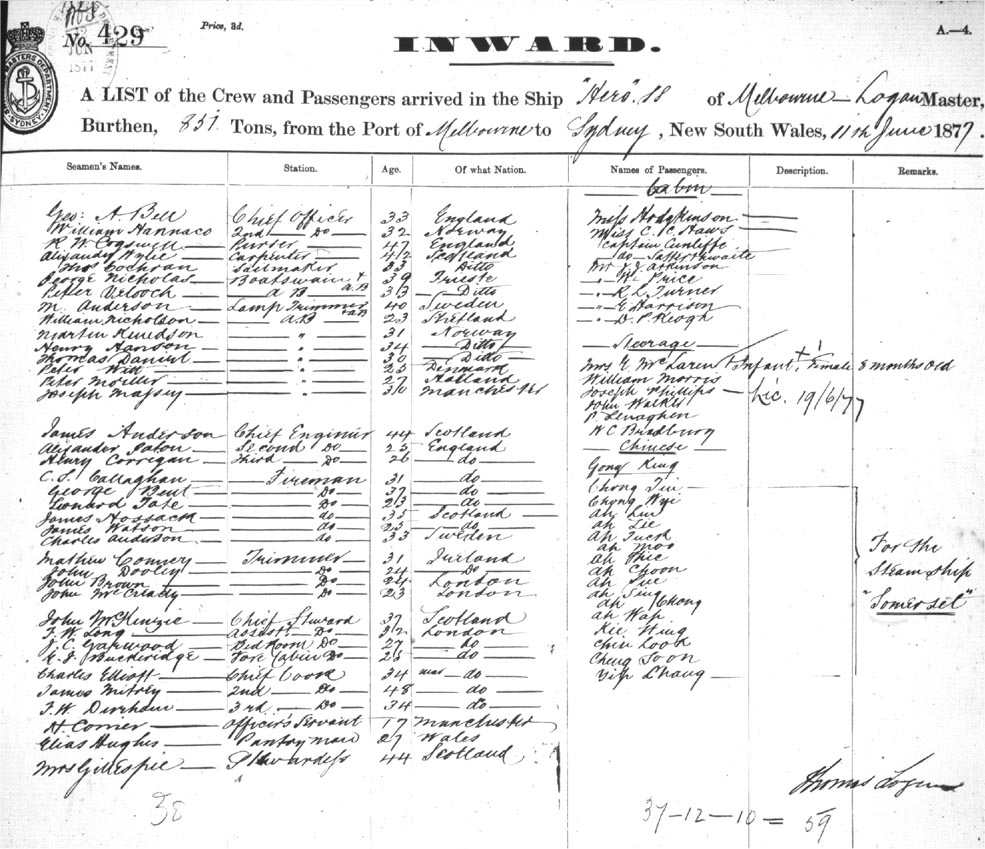 No. 429
Price, 3d.
A.—4.
INWARD.
A LIST of the Crew and Passengers arrived in the Ship "Hero" SS of Melbourne — Logan Master,
Burthen, 851 Tons, from the Port of Melbourne to Sydney, New South Wales, 11th June 1877.
Seamen's Names. Station. Age. Of what Nation. Names of Passengers. Description. Remarks.
Cabin
Geo: A Bell Chief Officer 33 England Miss Hodgkinson
William Hannaco 2nd Do 32 Norway Miss C. Haws
R W Cogswell Purser 47 England Captain Cunliffe
Wylie Carpenter 42 Scotland do Satterthwaite
Thos Cochran Sailmaker 33 Ditto Mr J. J. Atkinson
George Nicholas Boatswain + AB 39 Trieste " W. Price
Peter AB 33 Ditto " R L Turner
M. Anderson Lamp Trimmer + AB 40 Sweden " E Harrison
William Nicholson AB 23 Shetland " D. P. Keogh
Martin " 31 Norway Steerage
Henry Hanson " 34 Ditto
Thomas Daniel " 30 Ditto Mrs McLaren + Infant + Female 8 months old
Peter Witt " 25 Denmark William Morris
Peter Moeller " 27 Holland Joseph Phillips Lic. 19/6/77
Joseph Massey " 30 Manchester John Walker
P Lenaghen
James Anderson Chief Enginir 44 Scotland W C Bradbury
Alexander Second Do 25 England Chinese
Henry Corrigan Third Do 26 do Gong King
C. S. Callaghan Fireman 31 do Chong
George Bent Do 37 do Chong
Leonard Tate Do 23 do Ah
James Hossack do 35 Scotland Ah Lee
James Watson do 23 do Ah Tuck
Charles Anderson do 33 Sweden Ah Moo
Mathew Connery Trimmer 31 Ireland Ah
John Dooley Do 24 Do Ah Choon
John Brown Do 24 London Ah Sue
John McCready Do 23 London Ah Sing
Ah Chong
John McKenzie Chief Steward 37 Scotland Ah Wap
F. W. Long Assist. Do 32 London Kee Hing
J. C. Garwood Bed Room Do 27 do Chin Look
Buckeridge Fore Cabin Do 25 do Cheng Soon
Charles Elliott Chief Coock 34 do Yip Chang
James Mitrey 2nd Do 48 do
F. W. Durham 3rd Do 34 do
H Corner Officer's Servant 17 Manchester
Elias Hughes Pantry man 27 Wales
Mrs Gillespie Stewardess 44 Scotland
For the
Steam ship
"Somerset"
Thomas Logan
38
37-12-10 = 59